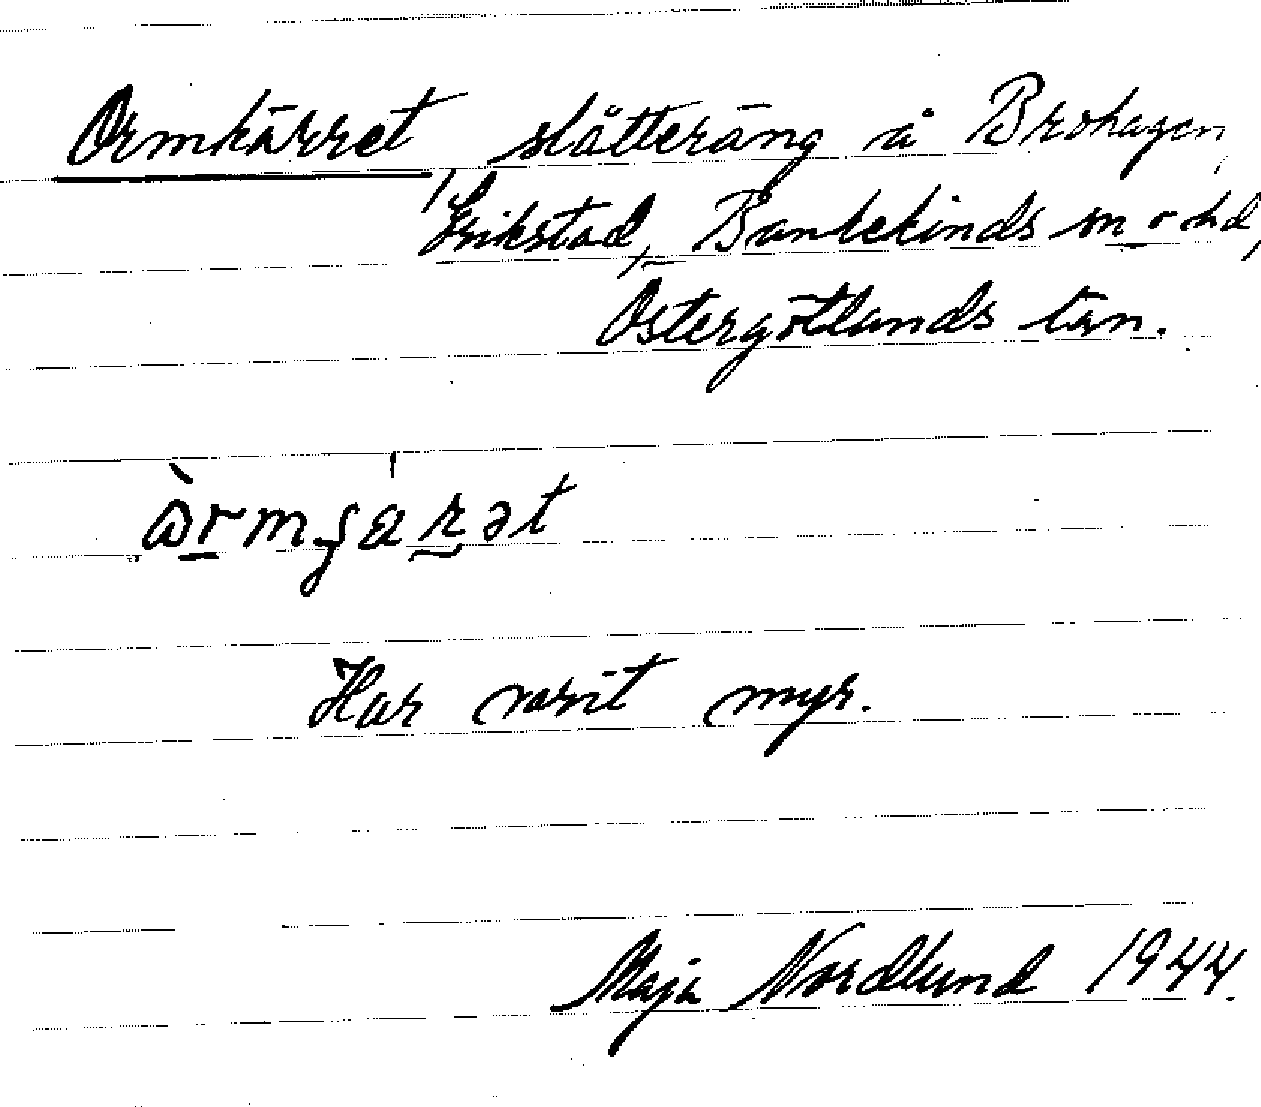 Ormkärret, slåtteräng å Brohagen,
Erikstad, Bankekinds sn o hd,
Östergötlands län.
Har varit myr.
Maja Nordlund 1944.